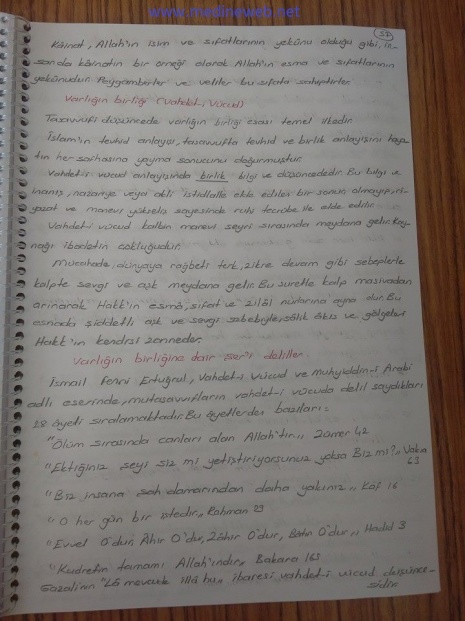 www.medineweb.net
57
Kâinat, Allah'ın isim ve sıfatlarının yekûnu olduğu gibi, in-
sanda kâinatın bir örneği olarak Allah'ın esma ve sıfatlarının
yekûnudur. Peygamberler ve veliler bu sıfata sahiptirler.
Varlığın birliği (Vahdet-i Vücud)
Tasavvufi düşüncede varlığın birliği esası temel ilkedir.
İslam'ın tevhid anlayışı, tasavvufta tevhid ve birlik anlayışını haya-
tın her safhasına yayma sonucunu doğurmuştur.
Vahdet-i vücud anlayışında birlik bilgi ve düşüncededir. Bu bilgi ve
inanış, nazariye veya akli istidlalle elde edilen bir sonuç olmayıp, ri-
yazat ve manevi yükseliş sayesinde ruhi tecrübe ile elde edilir.
Vahdet-i vücud kalbin manevi seyri sırasında meydana gelir. Kay-
nağı ibadetin çokluğudur.
Mücahede, dünyaya rağbeti terk, zikre devam gibi sebeplerle
kalpte sevgi ve aşk meydana gelir. Bu suretle kalp masivadan
arınarak Hakk'ın esmâ, sıfat ve zılâl nurlarına ayna olur. Bu
esnada şiddetli aşk ve sevgi sebebiyle, sâlik akis ve gölgeleri
Hakk'ın kendisi zanneder.
Varlığın birliğine dair şer'i deliller
İsmail Fenni Ertuğrul, Vahdet-i Vücud ve Muhyiddin-i Arabi
adlı eserinde, mutasavvıfların vahdet-i vücuda delil saydıkları
28 âyeti sıralamaktadır. Bu âyetlerden bazıları:
"Ölüm sırasında canları alan Allah'tır.,, Zümer 42
"Ektiğiniz şeyi siz mi yetiştiriyorsunuz yoksa Biz mi?,, Vakıa
63
"Biz insana şah damarından daha yakınız,, Kâf 16
"O her gün bir iştedir,, Rahman 29
"Evvel O'dur, Âhir O'dur, Zâhir O'dur, Bâtın O'dur,, Hadid 3
"Kudretin tamamı Allah'ındır,, Bakara 165
Gazali'nin "Lâ mevcude illâ hu,, ibaresi vahdet-i vücud düşünce-
sidir.